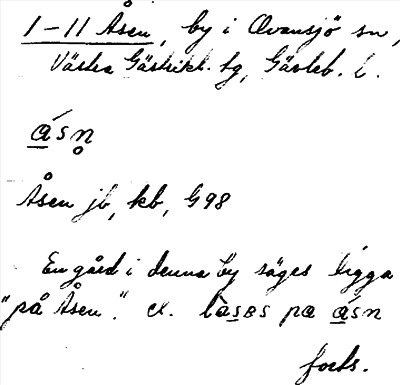 1–11 Åsen, by i Ovansjö sn,
Västra Gästrikl. tg, Gävleb. l.
ásn̥
Åsen jb, kb, G98
En gård i denna by säges ligga
"på Åsen". ex. làsɛs pa ásn
forts.